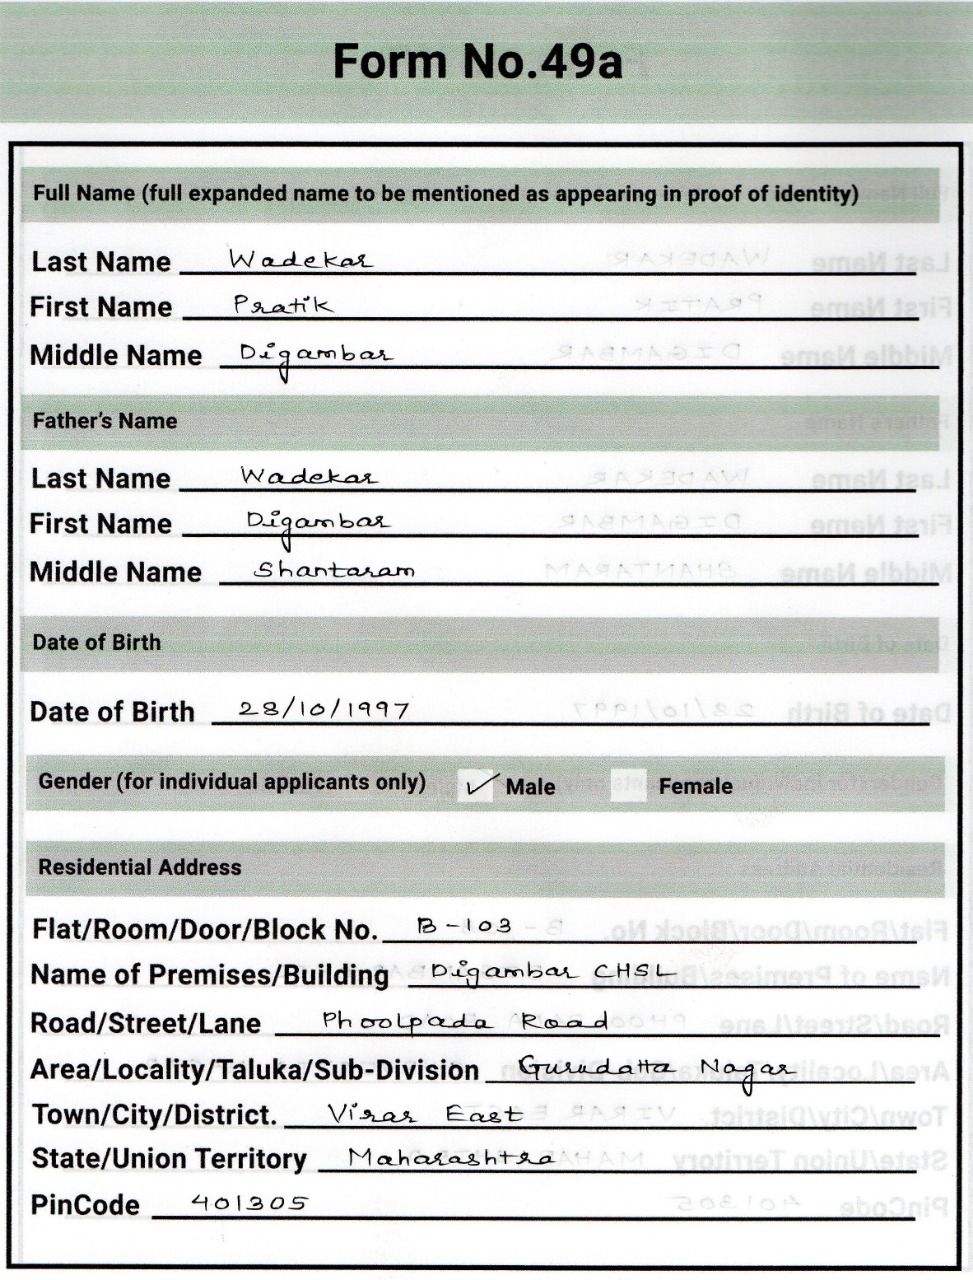 Form No.49a
Full Name (full expanded name to be mentioned as appearing in proof of identity)
Last Name Wadekar
First Name Pratik
Middle Name Digambar
Father's Name
Last Name Wadekar
First Name Digambar
Middle Name Shantaram
Date of Birth
Date of Birth 28/10/1997
Gender (for individual applicants only) ✓ Male Female
Residential Address
Flat/Room/Door/Block No. B-103
Name of Premises/Building Digambar CHSL
Road/Street/Lane Phoolpada Road
Area/Locality/Taluka/Sub-Division Gurudatta Nagar
Town/City/District. Virar East
State/Union Territory Maharashtra
PinCode 401305